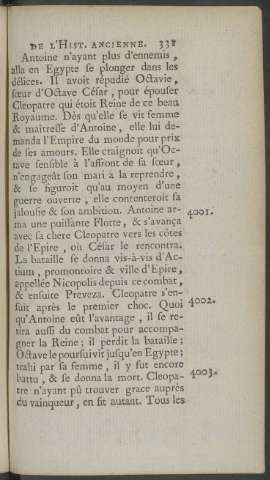 DE L'HIST. ANCIENNE. 331
Antoine n'ayant plus d'ennemis,
alla en Egypte se plonger dans les
délices. Il avoit répudié Octavie,
sœur d'Octave César, pour épouser
Cleopatre qui étoit Reine de ce beau
Royaume. Dès qu'elle se vit femme
& maitresse d'Antoine, elle lui de-
manda l'Empire du monde pour prix
de ses amours. Elle craignoit qu'Oc-
tave sensible à l'affront de sa sœur,
n'engageât son mari à la reprendre,
& se figuroit qu'au moyen d'une
guerre ouverte, elle contenteroit sa
jalousie & son ambition. Antoine ar- 4001.
ma une puissante Flotte, & s'avança
avec sa chere Cleopatre vers les côtes
de l'Epire, où César le rencontra.
La bataille se donna vis-à-vis d'Ac-
tium, promontoire & ville d'Epire,
appellée Nicopolis depuis ce combat,
& ensuite Preveza. Cleopatre s'en-
fuit après le premier choc. Quoi 4002.
qu'Antoine eût l'avantage, il se re-
tira aussi du combat pour accompa-
gner la Reine; il perdit la bataille;
Octave le poursuivit jusqu'en Egypte;
trahi par sa femme, il y fut encore
battu, & se donna la mort. Cleopa- 4003.
tre n'ayant pû trouver grace auprès
du vainqueur, en fit autant. Tous les